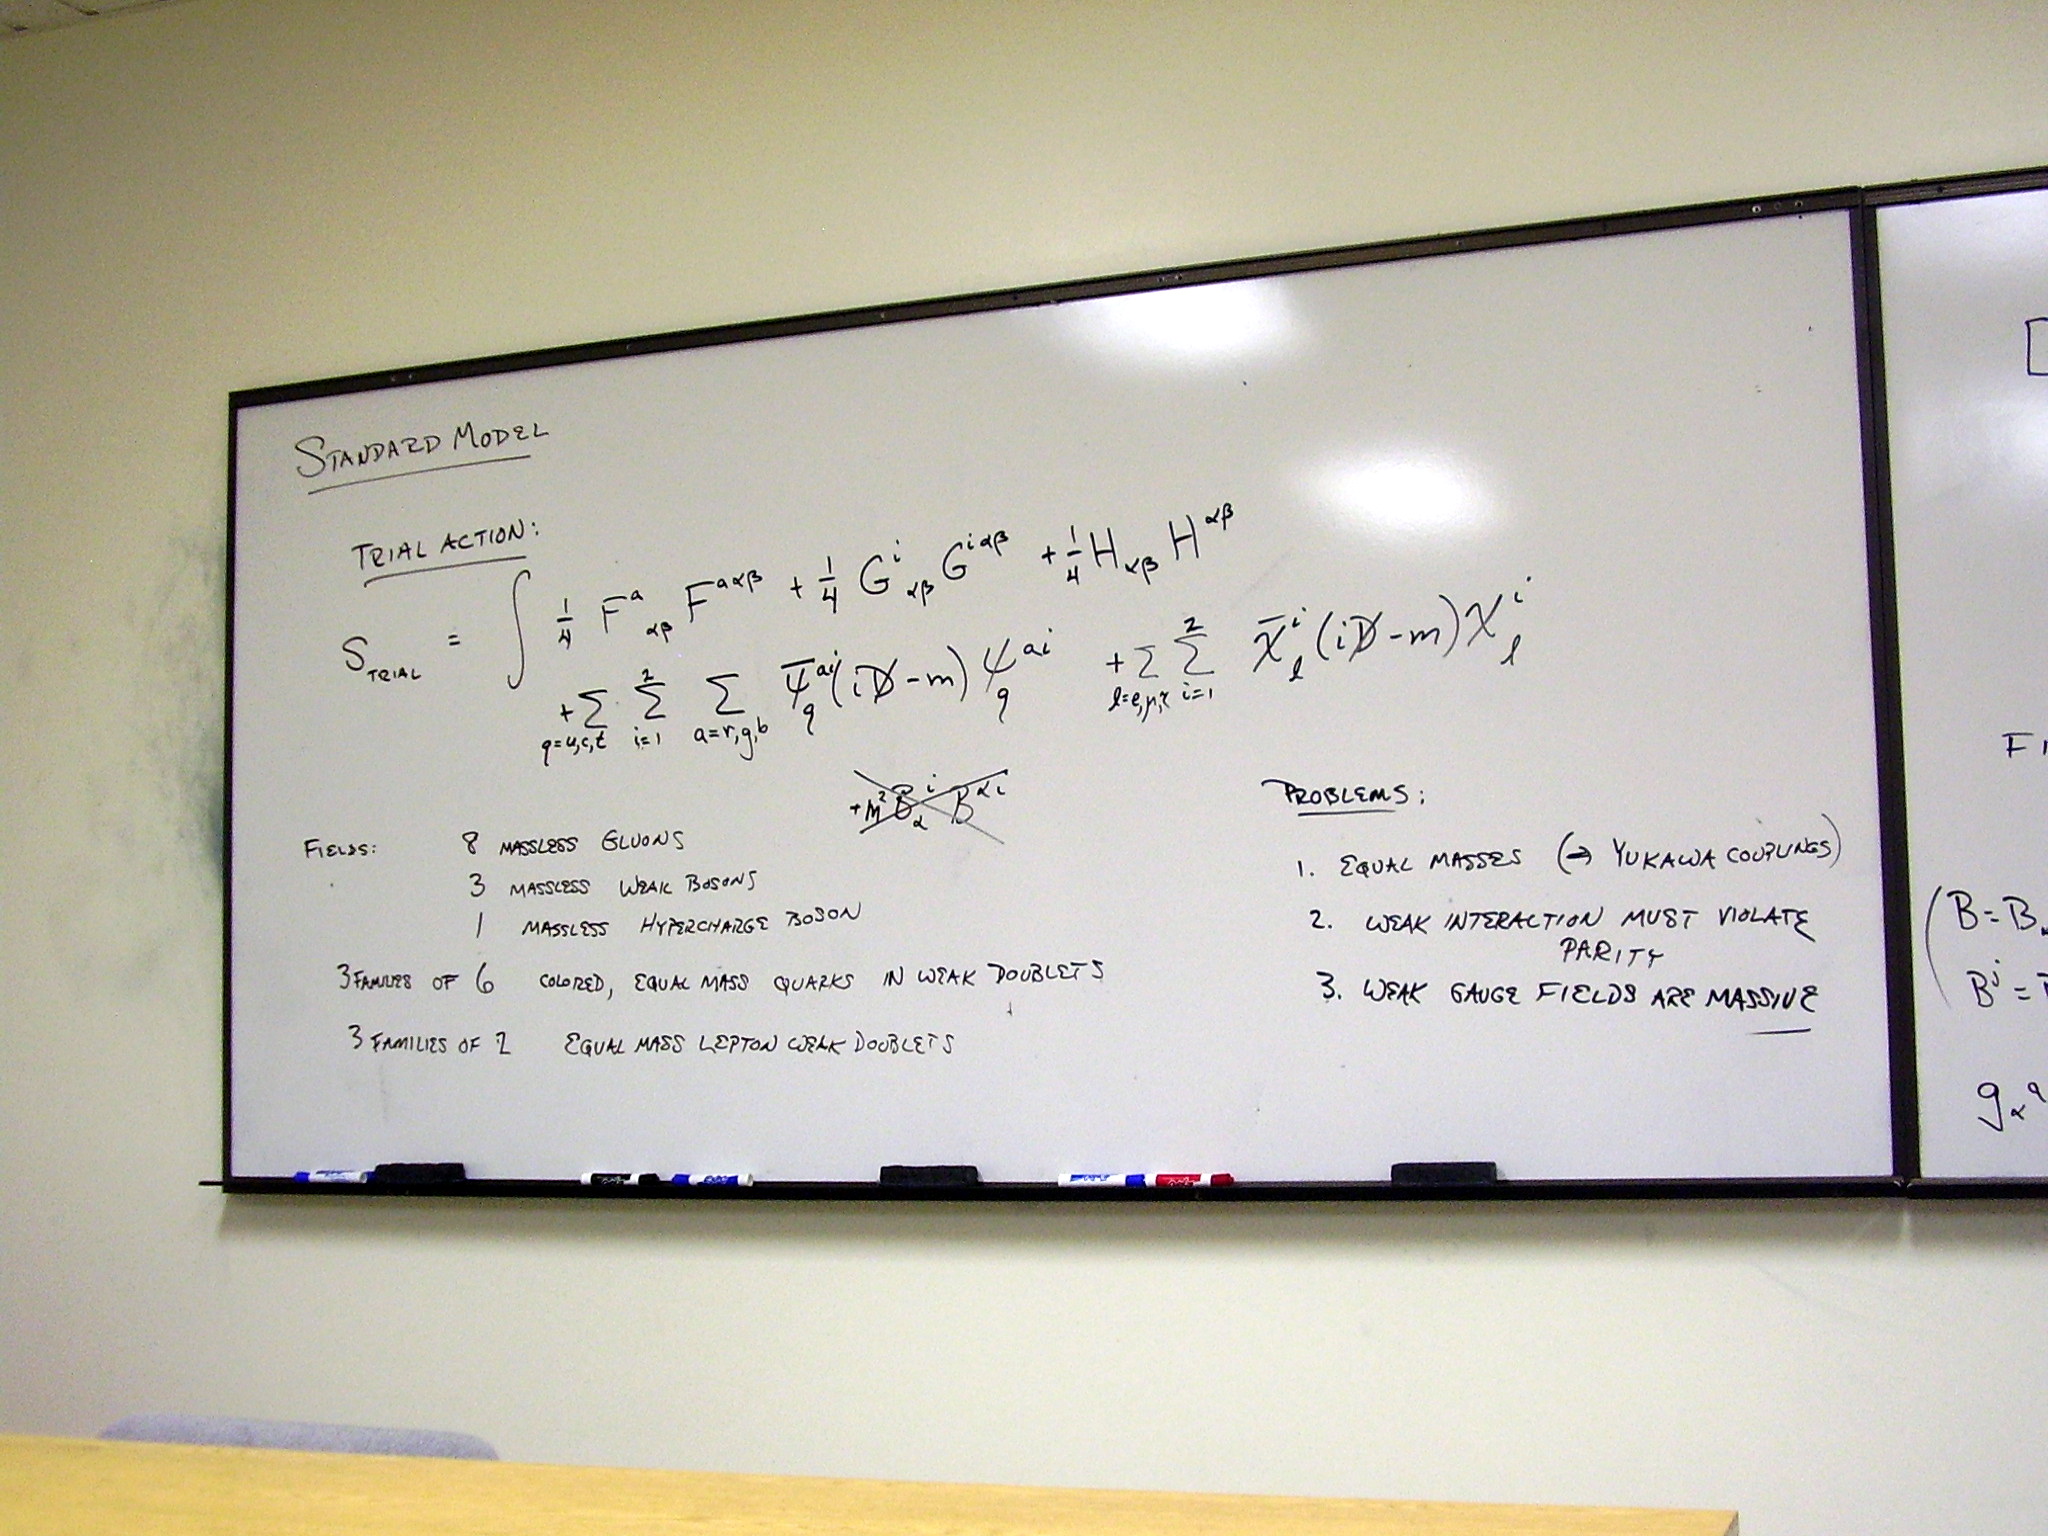 STANDARD MODEL
TRIAL ACTION:
S_TRIAL = ∫ 1/4 F^a_αβ F^aαβ + 1/4 G^i_αβ G^iαβ + 1/4 H_αβ H^αβ
+ Σ_{q=u,c,t} Σ_{i=1}^{2} Σ_{a=r,g,b} ψ̄^{ai}_q (iD̸ - m) ψ^{ai}_q + Σ_{l=e,μ,τ} Σ_{i=1}^{2} χ̄^i_l (iD̸ - m) χ^i_l
+m² B^i_α B^αi
FIELDS: 8 MASSLESS GLUONS
3 MASSLESS WEAK BOSONS
1 MASSLESS HYPERCHARGE BOSON
3 FAMILIES OF 6 COLORED, EQUAL MASS QUARKS IN WEAK DOUBLETS
3 FAMILIES OF 2 EQUAL MASS LEPTON WEAK DOUBLETS
PROBLEMS:
1. EQUAL MASSES (→ YUKAWA COUPLINGS)
2. WEAK INTERACTION MUST VIOLATE
PARITY
3. WEAK GAUGE FIELDS ARE MASSIVE
(B = B
B^j =
g_α